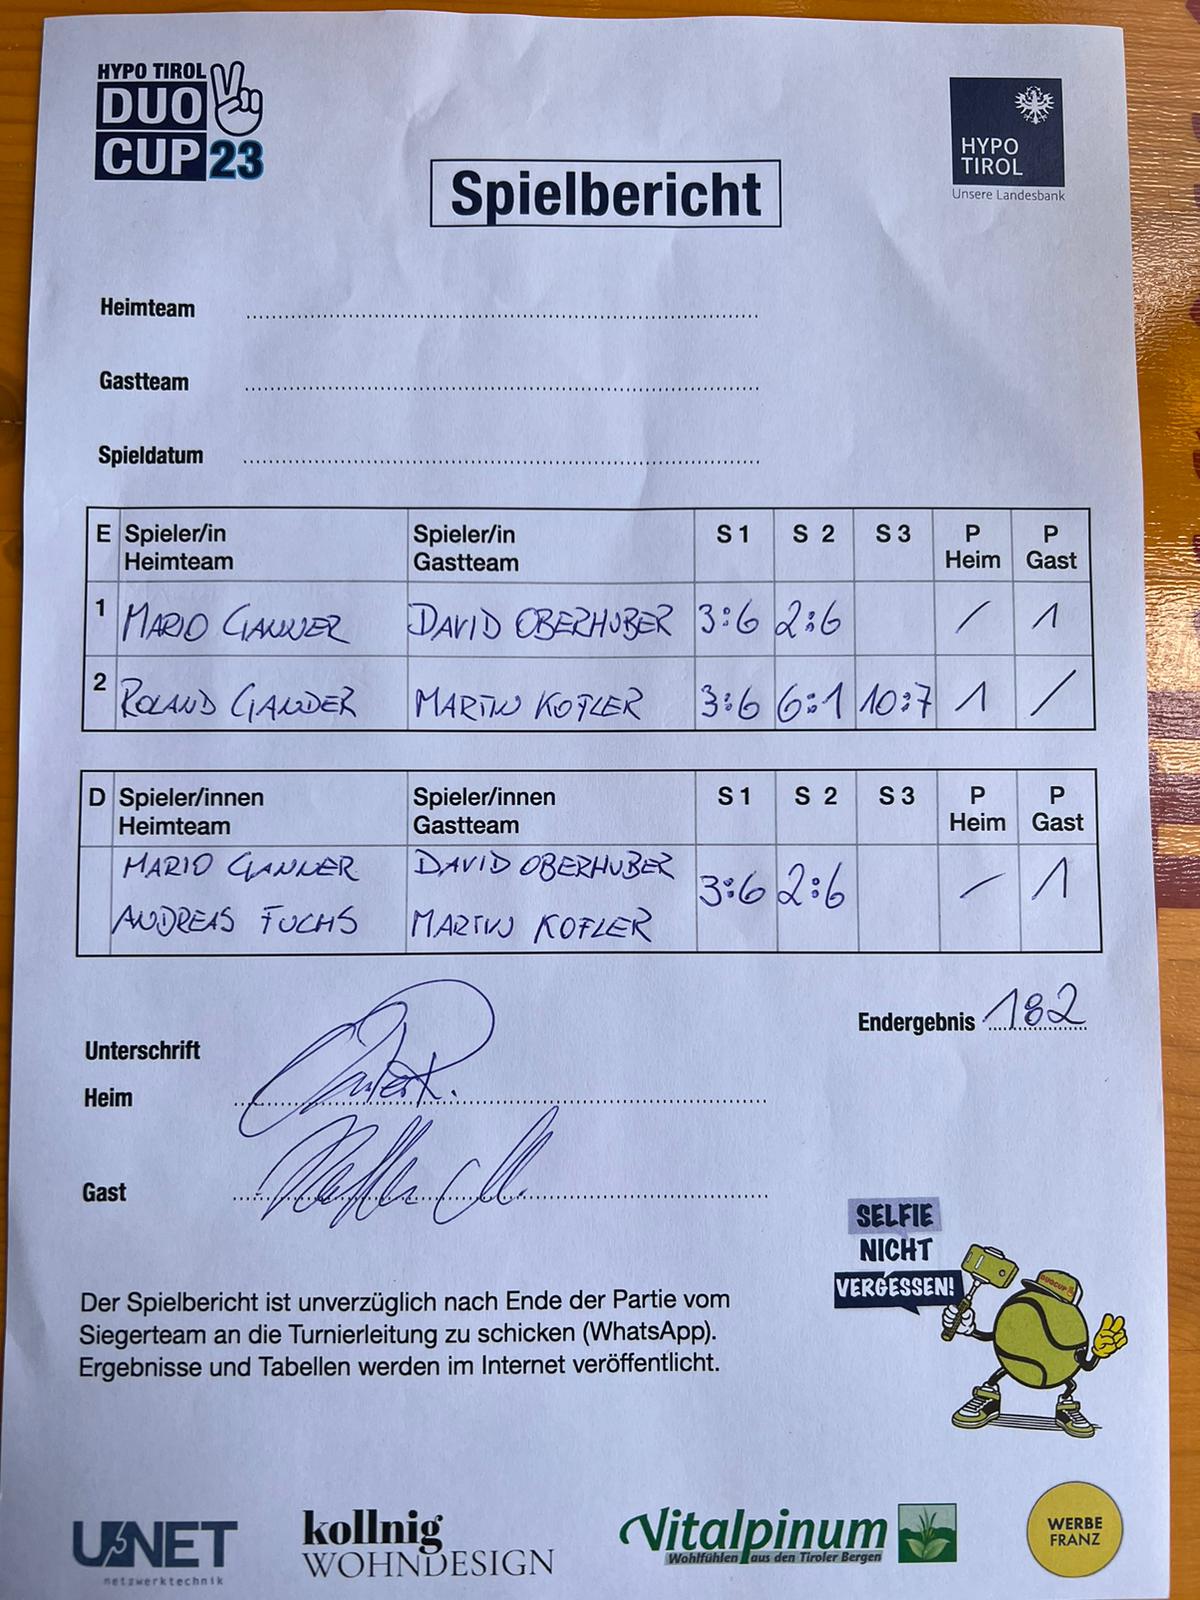 HYPO TIROL
DUO
CUP 23
HYPO
TIROL
Unsere Landesbank
Spielbericht
Heimteam
Gastteam
Spieldatum
E Spieler/in Heimteam Spieler/in Gastteam S 1 S 2 S 3 P Heim P Gast
1 MARIO GANNER DAVID OBERHUBER 3:6 2:6 / 1
2 ROLAND GANDER MARTIN KOFLER 3:6 6:1 10:7 1 /
D Spieler/innen Heimteam Spieler/innen Gastteam S 1 S 2 S 3 P Heim P Gast
MARIO GANNER DAVID OBERHUBER 3:6 2:6 / 1
ANDREAS FUCHS MARTIN KOFLER
Endergebnis 1:2
Unterschrift
Heim
Gast
SELFIE
NICHT
VERGESSEN!
DUOCUP
Der Spielbericht ist unverzüglich nach Ende der Partie vom
Siegerteam an die Turnierleitung zu schicken (WhatsApp).
Ergebnisse und Tabellen werden im Internet veröffentlicht.
U3NET
netzwerktechnik
kollnig
WOHNDESIGN
Vitalpinum
Wohlfühlen aus den Tiroler Bergen
WERBE
FRANZ